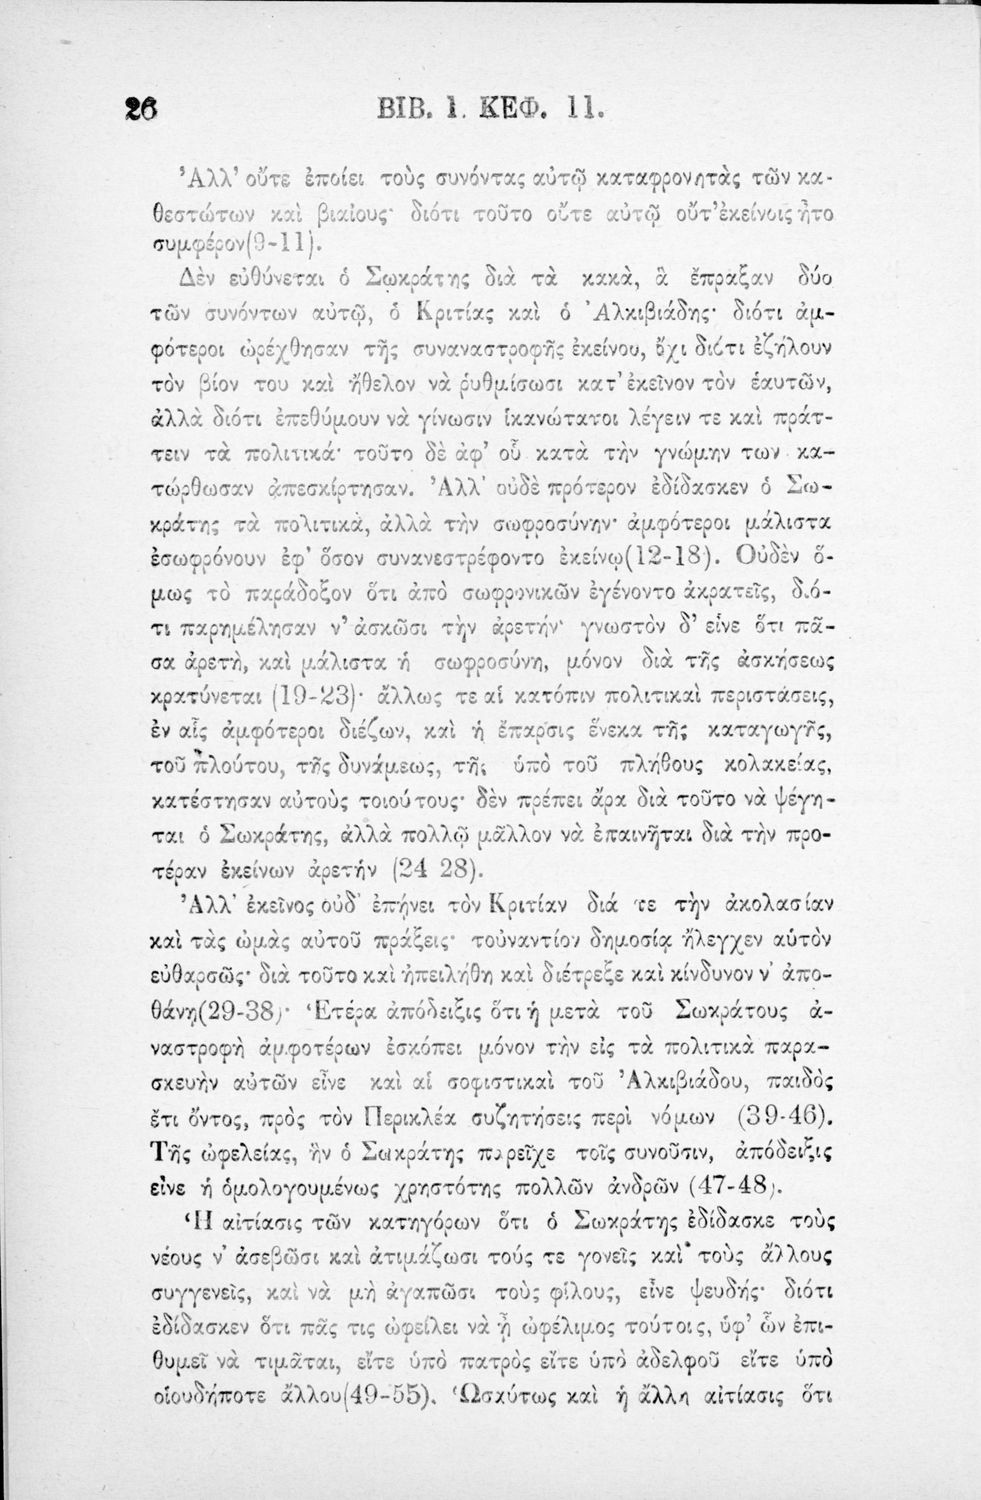 26 ΒΙΒ. 1. ΚΕΦ. 11.
Ἀλλ’ οὔτε ἐποίει τοὺς συνόντας αὐτῷ καταφρονητὰς τῶν κα-
θεστώτων καὶ βιαίους· διότι τοῦτο οὔτε αὐτῷ οὔτ’ἐκείνοις ἦτο
συμφέρον(9-11).
Δὲν εὐθύνεται ὁ Σωκράτης διὰ τὰ κακὰ, ἃ ἔπραξαν δύο
τῶν συνόντων αὐτῷ, ὁ Κριτίας καὶ ὁ Ἀλκιβιάδης· διότι ἀμ-
φότεροι ὠρέχθησαν τῆς συναναστροφῆς ἐκείνου, ὄχι διότι ἐζήλουν
τὸν βίον του καὶ ἤθελον νὰ ῥυθμίσωσι κατ’ἐκεῖνον τὸν ἑαυτῶν,
ἀλλὰ διότι ἐπεθύμουν νὰ γίνωσιν ἱκανώτατοι λέγειν τε καὶ πράτ-
τειν τὰ πολιτικά· τοῦτο δὲ ἀφ’ οὗ κατὰ τὴν γνώμην των κα-
τώρθωσαν ἀπεσκίρτησαν. Ἀλλ’ οὐδὲ πρότερον ἐδίδασκεν ὁ Σω-
κράτης τὰ πολιτικὰ, ἀλλὰ τὴν σωφροσύνην· ἀμφότεροι μάλιστα
ἐσωφρόνουν ἐφ’ ὅσον συνανεστρέφοντο ἐκείνῳ(12-18). Οὐδὲν ὅ-
μως τὸ παράδοξον ὅτι ἀπὸ σωφρονικῶν ἐγένοντο ἀκρατεῖς, διό-
τι παρημέλησαν ν’ ἀσκῶσι τὴν ἀρετήν· γνωστὸν δ’ εἶνε ὅτι πᾶ-
σα ἀρετὴ, καὶ μάλιστα ἡ σωφροσύνη, μόνον διὰ τῆς ἀσκήσεως
κρατύνεται (19-23)· ἄλλως τε αἱ κατόπιν πολιτικαὶ περιστάσεις,
ἐν αἷς ἀμφότεροι διέζων, καὶ ἡ ἔπαρσις ἕνεκα τῆς καταγωγῆς,
τοῦ πλούτου, τῆς δυνάμεως, τῆς ὑπὸ τοῦ πλήθους κολακείας,
κατέστησαν αὐτοὺς τοιούτους· δὲν πρέπει ἄρα διὰ τοῦτο νὰ ψέγη-
ται ὁ Σωκράτης, ἀλλὰ πολλῷ μᾶλλον νὰ ἐπαινῆται διὰ τὴν προ-
τέραν ἐκείνων ἀρετήν (24 28).
Ἀλλ’ ἐκεῖνος οὐδ’ ἐπήνει τὸν Κριτίαν διά τε τὴν ἀκολασίαν
καὶ τὰς ὠμὰς αὐτοῦ πράξεις· τοὐναντίον δημοσίᾳ ἤλεγχεν αὐτὸν
εὐθαρσῶς· διὰ τοῦτο καὶ ἠπειλήθη καὶ διέτρεξε καὶ κίνδυνον ν’ ἀπο-
θάνῃ(29-38)· Ἑτέρα ἀπόδειξις ὅτι ἡ μετὰ τοῦ Σωκράτους ἀ-
ναστροφὴ ἀμφοτέρων ἐσκόπει μόνον τὴν εἰς τὰ πολιτικὰ παρα-
σκευὴν αὐτῶν εἶνε καὶ αἱ σοφιστικαὶ τοῦ Ἀλκιβιάδου, παιδὸς
ἔτι ὄντος, πρὸς τὸν Περικλέα συζητήσεις περὶ νόμων (39-46).
Τῆς ὠφελείας, ἣν ὁ Σωκράτης παρεῖχε τοῖς συνοῦσιν, ἀπόδειξις
εἶνε ἡ ὁμολογουμένως χρηστότης πολλῶν ἀνδρῶν (47-48).
Ἡ αἰτίασις τῶν κατηγόρων ὅτι ὁ Σωκράτης ἐδίδασκε τοὺς
νέους ν’ ἀσεβῶσι καὶ ἀτιμάζωσι τούς τε γονεῖς καὶ τοὺς ἄλλους
συγγενεῖς, καὶ νὰ μὴ ἀγαπῶσι τοὺς φίλους, εἶνε ψευδής· διότι
ἐδίδασκεν ὅτι πᾶς τις ὠφείλει νὰ ᾖ ὠφέλιμος τούτοις, ὑφ’ ὧν ἐπι-
θυμεῖ νὰ τιμᾶται, εἴτε ὑπὸ πατρὸς εἴτε ὑπὸ ἀδελφοῦ εἴτε ὑπὸ
οἱουδήποτε ἄλλου(49-55). Ὡσαύτως καὶ ἡ ἄλλη αἰτίασις ὅτι